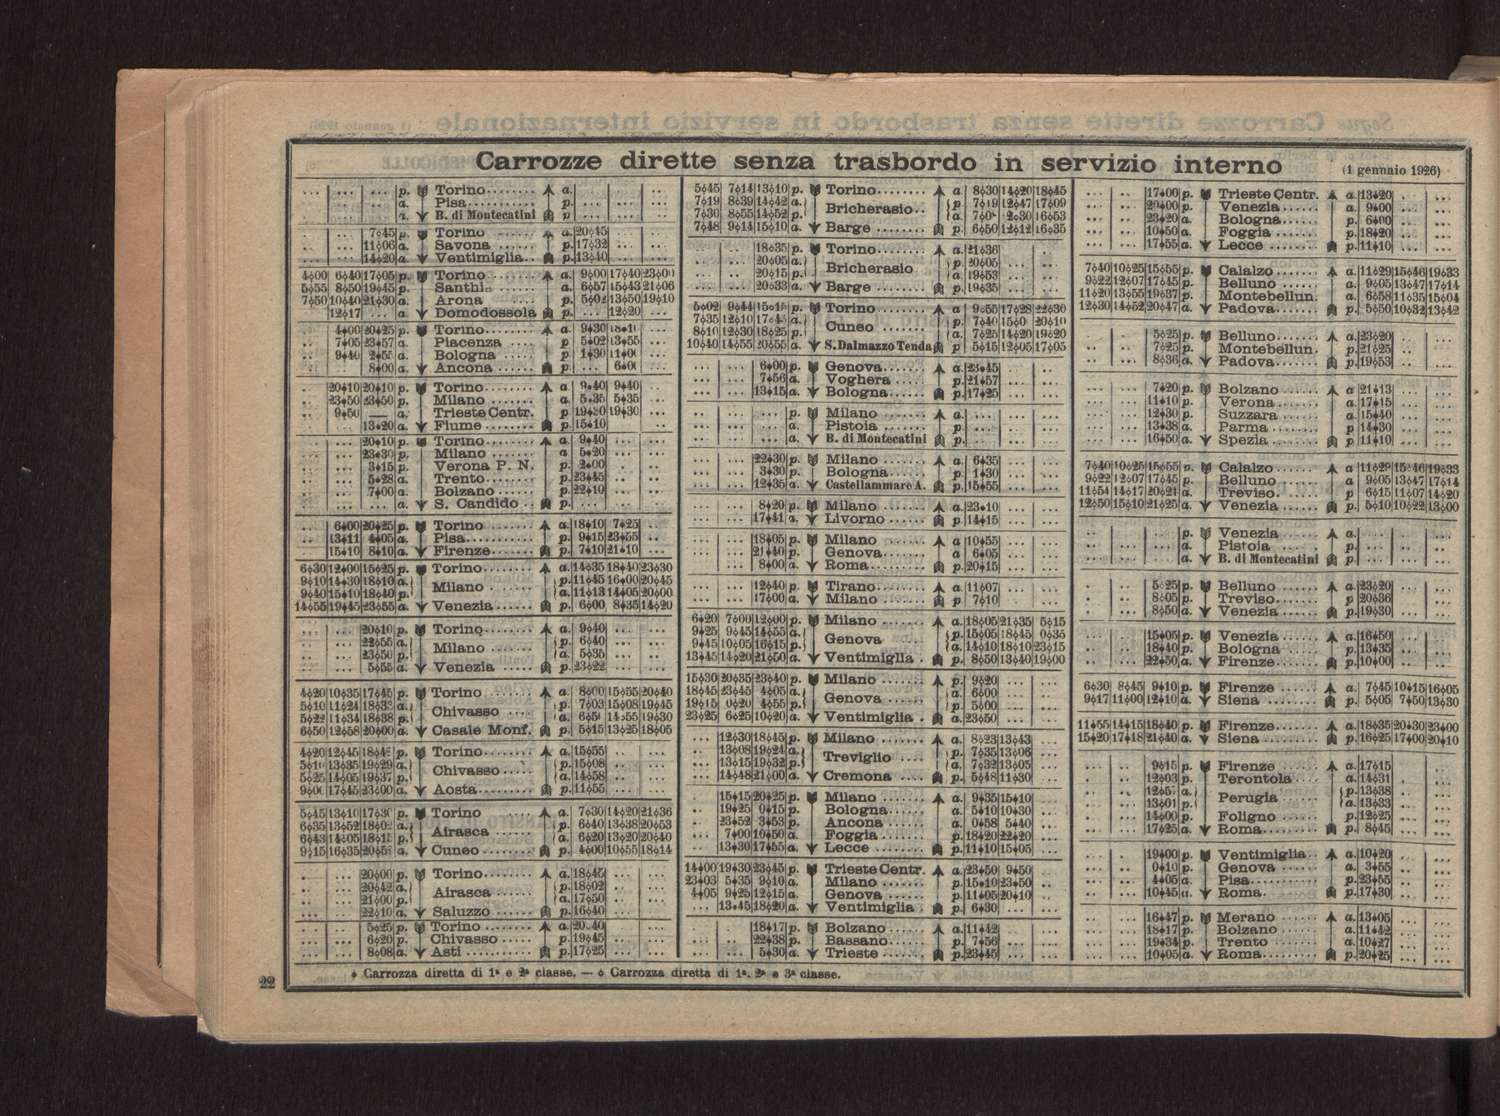 Carrozze dirette senza trasbordo in servizio interno (1 gennaio 1926)
... ... ... p. Torino ........ a. ... ... ..
... ... ... a. Pisa .......... p. ... ... ...
B. di Montecatini p ... ... ...
.. ... 7♦45 p. Torino ...... a. 20♦45
.. ... 11♦06 a. Savona ...... p. 17♦32
.. ... 14♦20 a. Ventimiglia.. p. 13♦40
4◊00 6◊40 17◊05 p. Torino ....... a. 9◊00 17◊40 23◊00
5◊55 8◊50 19◊45 a. Santhià ..... a. 6◊57 15◊43 21◊06
7◊50 10◊40 21◊30 a. Arona ....... p. 5◊02 13◊50 19◊10
12◊17 ... a. Domodossola p. ... 12◊20 ...
4♦00 20♦25 p. Torino........ a. 9♦30
7♦05 23♦57 a. Piacenza .... p. 5♦02 13♦55
9♦40 2♦55 a. Bologna ..... p. 1♦30
8♦00 a. Ancona ...... p. ...
20♦10 20♦10 p. Torino ....... a. 9♦40 9♦40
23♦50 23♦50 p. Milano ....... a. 5♦35 5♦35
9♦50 — a. Trieste Centr. p 19♦30 19♦30
13♦20 a. Fiume ........ p. 15♦10
20♦10 p. Torino ....... a. 9♦40
23♦30 p. Milano ....... a 5♦20
3♦15 p. Verona P. N. p. 2♦00
5♦28 a. Trento ....... p. 23♦45
7♦00 a. Bolzano ...... p. 22♦10
a. S. Candido .. p. ...
6♦00 20♦25 p. Torino ...... a. 18♦10 7♦25
13♦11 4♦05 a. Pisa......... p. 9♦15 23♦55
15♦10 8♦10 a. Firenze...... p. 7♦10 21♦10
6◊30 12◊00 15◊25 p. Torino........ a. 14◊35 18◊40 23◊30
9◊10 14◊30 18◊10 a. Milano ...... p. 11◊45 16◊00 20◊45
9◊40 15◊10 18◊40 p. a. 11◊13 14◊05 20◊00
14◊55 19◊45 23◊55 a. Venezia ...... p. 6◊00 8◊35 14◊20
20◊10 p. Torino........ a. 9◊40
22◊55 a. Milano ...... p. 6◊40
23◊50 p. a. 5◊35
5◊55 a. Venezia ...... p. 23◊22
4◊20 10◊35 17◊45 p. Torino ....... a. 8◊00 15◊55 20◊40
5◊10 11◊24 a. Chivasso .... p. 7◊03 15◊08 19◊45
5◊22 11◊34 18◊38 p. a. 14◊55 19◊30
6◊50 12◊58 20◊00 a. Casale Monf. p. 5◊15 13◊25 18◊05
4◊20 12◊45 p. Torino ....... a. 15◊55
13◊35 19◊29 a. Chivasso .... p. 15◊08
5◊25 14◊05 19◊37 p. a. 14◊58
17◊45 23◊00 a. Aosta ....... p. 11◊55
5◊45 13◊10 p. Torino a. 7◊30 14◊20 21◊36
6◊35 13◊52 a. Airasca ...... p. 6◊40 13◊38 20◊53
6◊43 14◊05 p. a. 6◊20 13◊20 20◊40
9◊15 16◊35 a. Cuneo ...... p. 4◊00 10◊55 18◊14
20◊00 p. Torino ....... a. 18◊45
20◊42 a. Airasca ...... p. 18◊02
21◊00 p. a. 17◊50
22◊10 a. Saluzzo ...... p. 16◊40
5◊25 p. Torino ....... a. 20◊40
6◊20 p. Chivasso ..... p. 19◊45
8◊08 a. Asti .......... p. 17◊25
5◊45 7◊14 13◊10 p. Torino........ a 8◊30 14◊20 18◊45
7◊19 8◊39 14◊42 a. Bricherasio.. p 7◊19 12◊47 17◊09
7◊30 8◊55 14◊52 p. a. 16◊53
7◊48 9◊14 15◊10 a. Barge ........ p 6◊50 12◊12 16◊35
18◊35 p. Torino........ a. 21◊36
20◊05 a. Bricherasio p. 20◊05
20◊15 p. a. 19◊53
20◊33 a. Barge ........ p. 19◊35
5◊02 9◊44 p. Torino ....... a 9◊55 17◊28 22◊30
7◊35 12◊10 17◊45 a. Cuneo ...... p. 7◊40 20◊10
8◊10 12◊30 18◊25 p. a. 7◊25 14◊20 19◊20
10◊40 14◊55 20◊55 a. S. Dalmazzo Tenda p 5◊15 12◊05 17◊05
6♦00 p. Genova....... a. 23♦45
7♦56 a. Voghera ..... p. 21♦57
13♦15 a. Bologna ...... p. 17♦25
... p. Milano ....... a. ...
... a. Pistoia ....... p. ...
... a. B. di Montecatini p. ...
22♦30 p. Milano ....... a. 6♦35
3♦30 p. Bologna....... a 1♦30
12♦35 a. Castellammare A. p. 15♦55
8◊20 p. Milano ....... a. 23◊10
17◊41 a. Livorno ...... p. 14◊15
18♦05 p. Milano ....... a 10♦55
21♦40 p. Genova....... a 6♦05
8♦00 a. Roma......... p. 20♦15
12♦40 p. Tirano ....... a. 11♦07
17♦00 a. Milano ....... p 7♦10
6◊20 7◊00 12◊00 p. Milano ....... a. 18◊05 21◊35 5◊15
9◊25 9◊45 14◊55 a. Genova ..... p. 15◊05 18◊45 0◊35
9◊45 10◊05 16◊15 p. a. 14◊10 18◊10 23◊15
13◊45 14◊20 21◊50 a. Ventimiglia . p. 8◊50 13◊40 19◊00
15◊30 20◊35 23◊40 p. Milano ....... p. 9◊20
18◊45 23◊45 4◊05 a. Genova ..... a. 6◊00
19◊15 0◊20 4◊55 p. p. 5◊00
23◊25 6◊25 10◊20 a. Ventimiglia . a. 23◊50
12◊30 18◊45 p. Milano ....... a. 8◊23 13◊43
13◊08 19◊24 a. Treviglio .... p. 7◊35 13◊06
13◊15 19◊32 p. a. 7◊32 13◊05
14◊48 21◊00 a. Cremona .... p. 5◊48 11◊30
15♦15 20♦25 p. Milano ....... a. 9♦35 15♦10
19♦25 0♦15 p. Bologna...... a. 5♦10 10♦30
23♦52 3♦53 p. Ancona ...... a. 0♦58 5♦40
7♦00 10♦50 a. Foggia ....... p. 18♦20 22♦20
13♦30 17♦55 a. Lecce ........ p. 11♦10 15♦05
14♦00 19♦30 23♦45 p. Trieste Centr. a. 23♦50 9♦50
23♦03 5♦35 9♦10 a. Milano ....... p. 15♦10 23♦50
4♦05 9♦25 12♦15 a. Genova ...... p. 11♦05 20♦10
13♦45 18♦20 a. Ventimiglia . p. 6♦30
18♦17 p. Bolzano ...... a. 11♦42
22♦38 p. Bassano...... p. 7♦56
5♦30 a. Trieste ....... p. 23♦45
17♦00 p. Trieste Centr. a. 13♦20
20♦00 p. Venezia...... a 9♦00
23♦20 a. Bologna...... p. 6♦00
10♦50 a. Foggia ....... p. 18♦20
17♦55 a. Lecce ........ p. 11♦10
7◊40 10◊25 15◊55 p. Calalzo ....... a. 11◊29 15◊46 19◊33
9◊22 12◊07 17◊45 p. Belluno ...... a. 9◊05 13◊47 17◊14
11◊20 13◊55 19◊37 p. Montebellun. a. 6◊58 11◊35 15◊04
12◊30 14◊52 20◊47 a. Padova ....... p. 5◊50 10◊32 13◊42
5◊25 p. Belluno ...... a. 23◊20
7◊25 p. Montebellun. p. 21◊25
8◊36 a. Padova ....... p. 19◊53
7♦20 p. Bolzano ...... a 21♦13
11♦10 p. Verona ...... a. 17♦15
12♦30 p. Suzzara ...... a. 15♦40
13♦38 a. Parma ....... p 14♦30
16♦50 a. Spezia ....... p 11♦10
7◊40 10◊25 15◊55 p. Calalzo ....... a 11◊29 15◊46 19◊33
9◊22 12◊07 17◊45 p. Belluno ...... a 9◊05 13◊47 17◊14
11◊54 14◊17 20◊21 a. Treviso. ..... p 6◊15 11◊07 14◊20
12◊50 15◊10 21◊25 a. Venezia ...... p 5◊10 10◊22 13◊00
p. Venezia ...... a. ...
a. Pistoia ....... p. ...
a. B. di Montecatini p. ...
5◊25 p. Belluno ...... a. 23◊20
8◊05 p. Treviso....... p. 20◊36
8◊50 a. Venezia ...... p. 19◊30
15♦05 p. Venezia ...... a. 16♦50
18♦40 p. Bologna ..... p. 13♦35
22♦50 a. Firenze ...... p. 10♦00
6◊30 8◊45 9◊10 p. Firenze ...... a. 7◊45 10◊15 16◊05
9◊17 11◊00 12◊10 a. Siena ........ p. 5◊05 7◊50 13◊30
11◊55 14◊15 18◊40 p. Firenze....... a. 18◊35 20◊30 23◊00
15◊20 17◊18 21◊40 a. Siena ........ p. 16◊25 17◊00 20◊10
9◊15 p. Firenze ...... a. 17◊15
12◊03 p. Terontola.... a. 14◊31
a. Perugia ..... p. 13◊38
13◊01 p. a. 13◊33
14◊00 p. Foligno ...... a. 12◊25
17◊25 a. Roma......... p. 8◊45
19♦00 p. Ventimiglia.. a. 10♦20
0♦10 p. Genova ...... a. 3♦55
4♦05 p. Pisa.......... p. 23♦55
10♦45 a. Roma......... p. 17♦30
16♦47 p. Merano ...... a. 13♦05
18♦17 p. Bolzano ..... a. 11♦42
19♦34 p. Trento ....... a. 10♦27
10♦05 a. Roma......... p. 20♦25
♦ Carrozza diretta di 1ª e 2ª classe. — ◊ Carrozza diretta di 1ª. 2ª e 3ª classe.
22